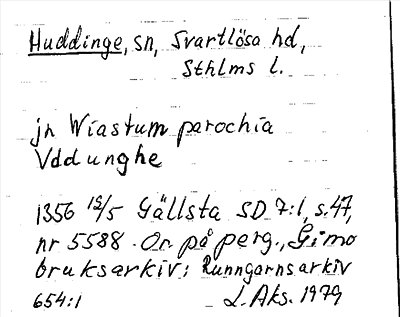 Huddinge, sn, Svartlösa hd,
Sthlms l.
jn Wiastum parochia
Vddunghe
1356 19/5 Gällsta SD 7:1, s.47,
nr 5588. Or på perg., Gimo
bruksarkiv: Runngarnsarkiv
654:1 L. Aks. 1979